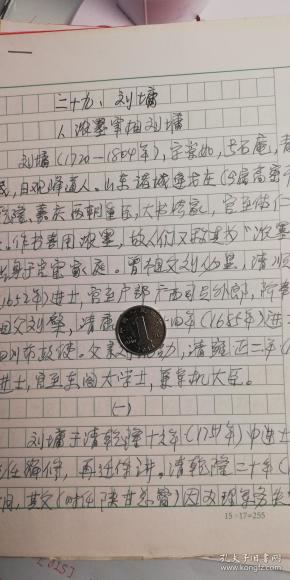 二十九、刘墉
人浓墨宰相刘墉
刘墉(1720—1804年),字崇如,号石庵,青
原,日观峰道人。山东诸城逄戈庄(今属高密市
乾隆、嘉庆两朝重臣,大书法家,官至体仁
作书善用浓墨,故人们又称其为"浓墨
出身于官宦家庭。曾祖父刘必显,清顺
1652年)进士,官至户部广西司员外郎,
祖父刘棨,清康 四年(1685年)进士
四川布政使。父亲刘 勋,清雍正二年(
进士,官至东阁大学士,兼军机大臣。
(一)
刘墉于清乾隆十六年(1751年)中进士
任编修,再迁侍讲。清乾隆二十年(
间,其父(时任陕甘总督)因办理军务
15×17=255
孔夫子旧书网